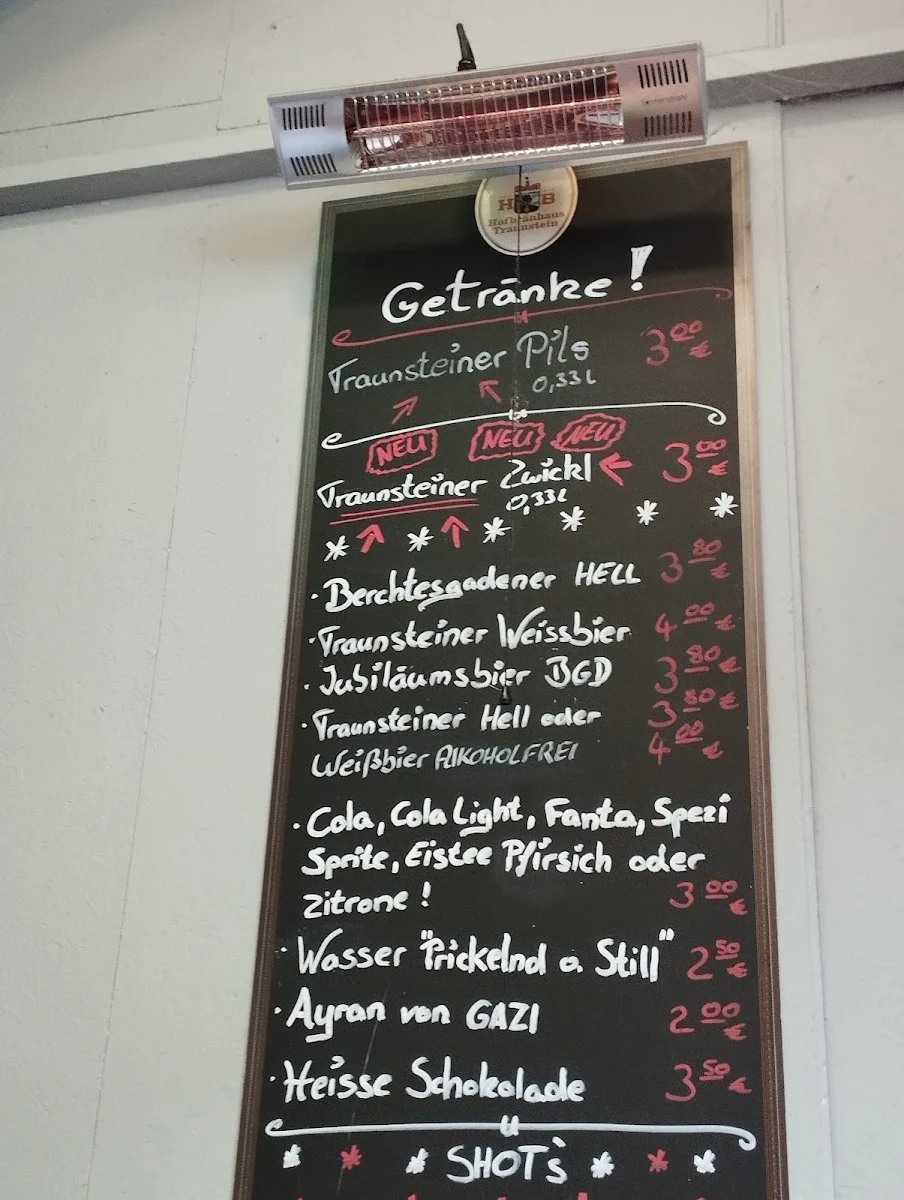 Sonnenstrahl
H B
Hofbräuhaus
Traunstein
Getränke!
Traunsteiner Pils 3 00 €
0,33 L
NEU NEU NEU
Traunsteiner Zwickl 3 00 €
0,33 L
· Berchtesgadener HELL 3 80 €
· Traunsteiner Weissbier 4 00 €
· Jubiläumsbier BGD 3 80 €
· Traunsteiner Hell oder 3 80 €
Weißbier AlKOHOLFREI 4 00 €
· Cola, Cola Light, Fanta, Spezi
Sprite, Eistee Pfirsich oder
Zitrone! 3 00 €
· Wasser "Prickelnd o. Still" 2 50 €
· Ayran von GAZI 2 00 €
· Heisse Schokolade 3 50 €
SHOT`s